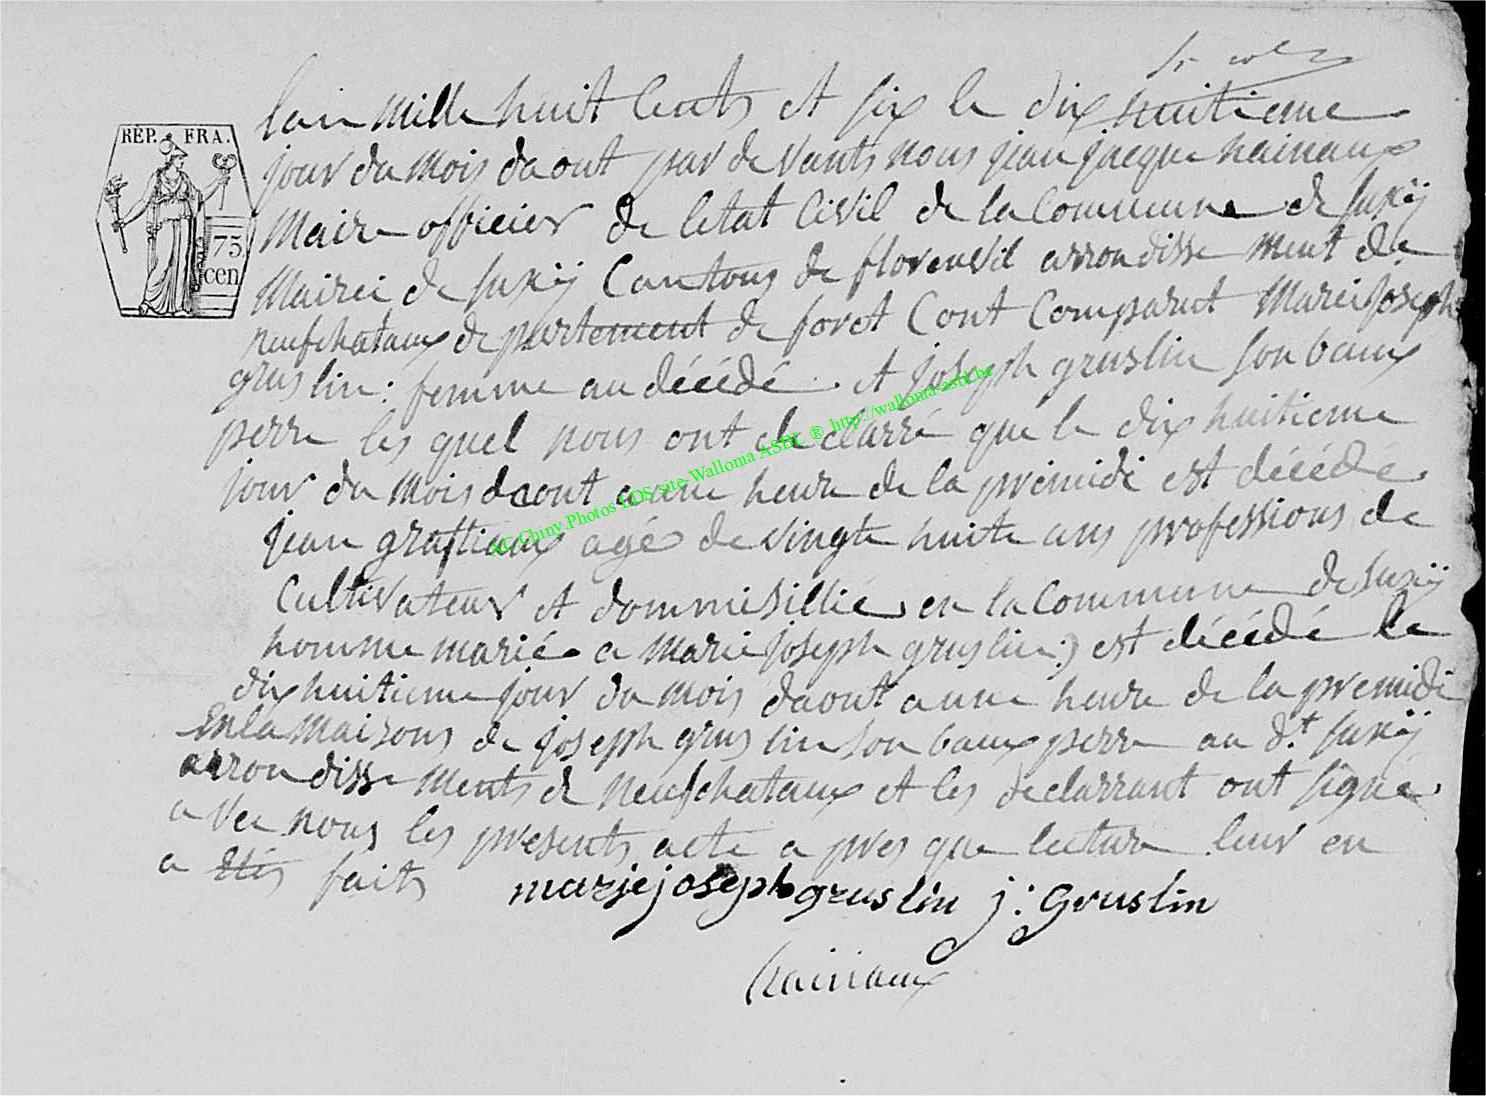 RÉP. FRA.
75
cen
lan mille huit Cents et six le dix huitieme
jour du mois daout par de vants nous jean jacque hainaux
Maire officier de letat Civil de la Commune de Suxÿ
Mairei de Suxÿ Cantons de florenvil arrondisse ment de
neufchataux de partement de foret Cont Comparut Marei Joseph
gruslin : femme au décédé . et Joseph gruslin son baux
perre les quel nous ont de clarré que le dix huitieme
jour du mois daout a une heure de la premidi est décédé
jean graftiaux agé de vingte huite ans professions de
Cultivateur et dommisillié en la Commune de Suxÿ
homme marié a Marie Joseph gruslin :) est décédé le
dix huitieme jour du mois daout a une heure de la premidi
En la Maisons de Joseph grus lin son baux perre au d.t Suxÿ
arron disse ments de neufchataux et les declarrant ont signé
a vec nous les presents acte a pres que lecture leur en
a étés faits
marie joseph gruslin j : gruslin
hainaux
AC Chiny Photos LDS site Wallonia ASBL ® http://wallonia-asbl.be